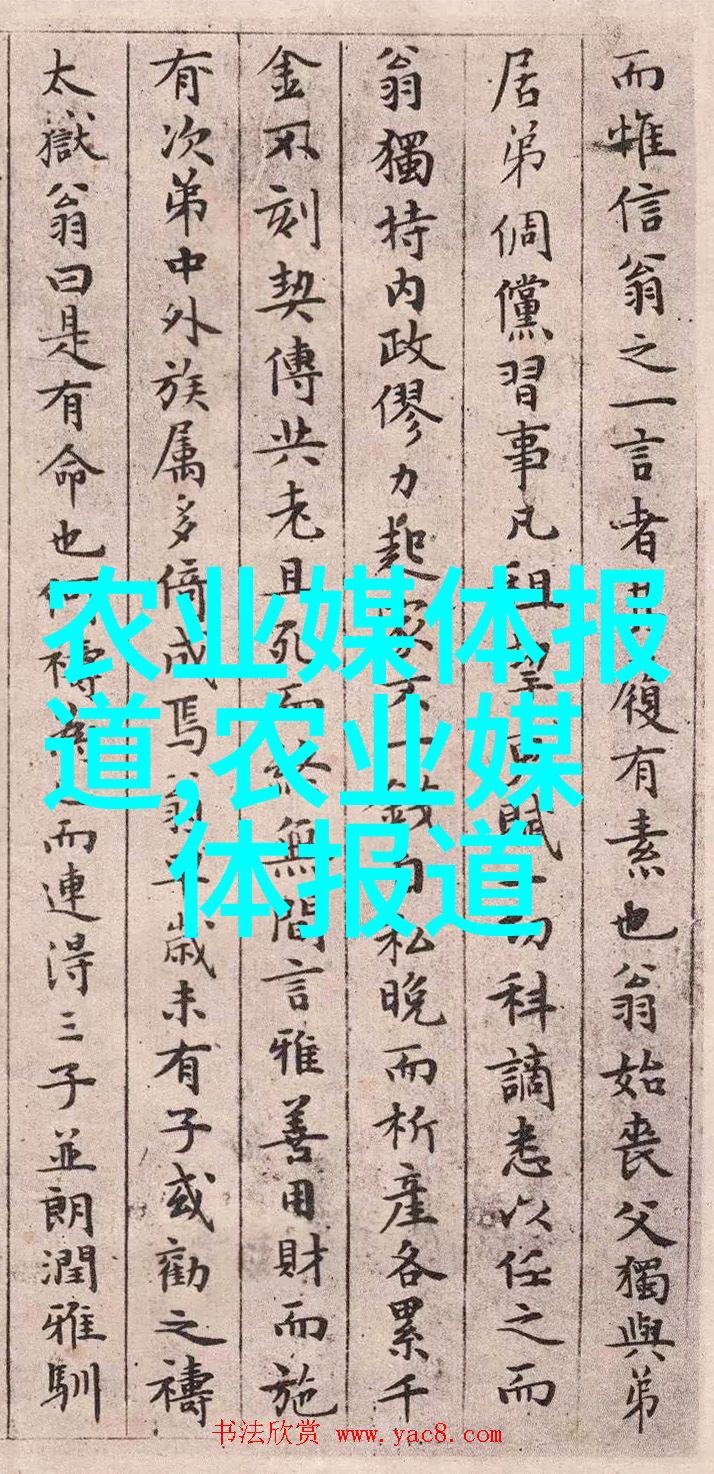 而惟信翁之一言者其履有素也翁始喪父獨與弟
居弟倜儻習事凡租賦一切科謫悉以任之而
翁獨持内政僇力起家不一錢自私晚而析產各累千
金不刻契傳共老且死而終無間言雅善用財而施
有次第中外族属多倚成焉翁早歲未有子或勸之禱
太嶽翁曰是有命也何禱為而連得三子並朗潤雅馴
农业媒体报
道,农业媒
体报道
书法欣赏 www.yac8.com